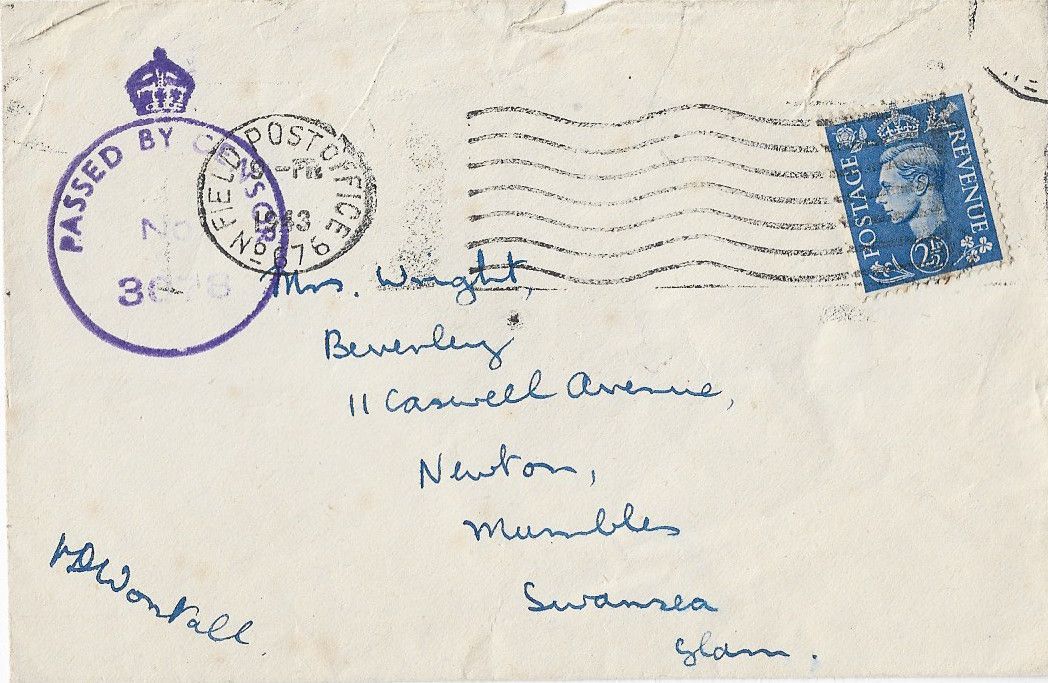 PASSED BY CENSOR
No
FIELD POST OFFICE
1943
No 676
POSTAGE REVENUE
2½D
Mrs. Wright,
Beverley
11 Caswell Avenue,
Newton,
Mumbles
Swansea
Glam.